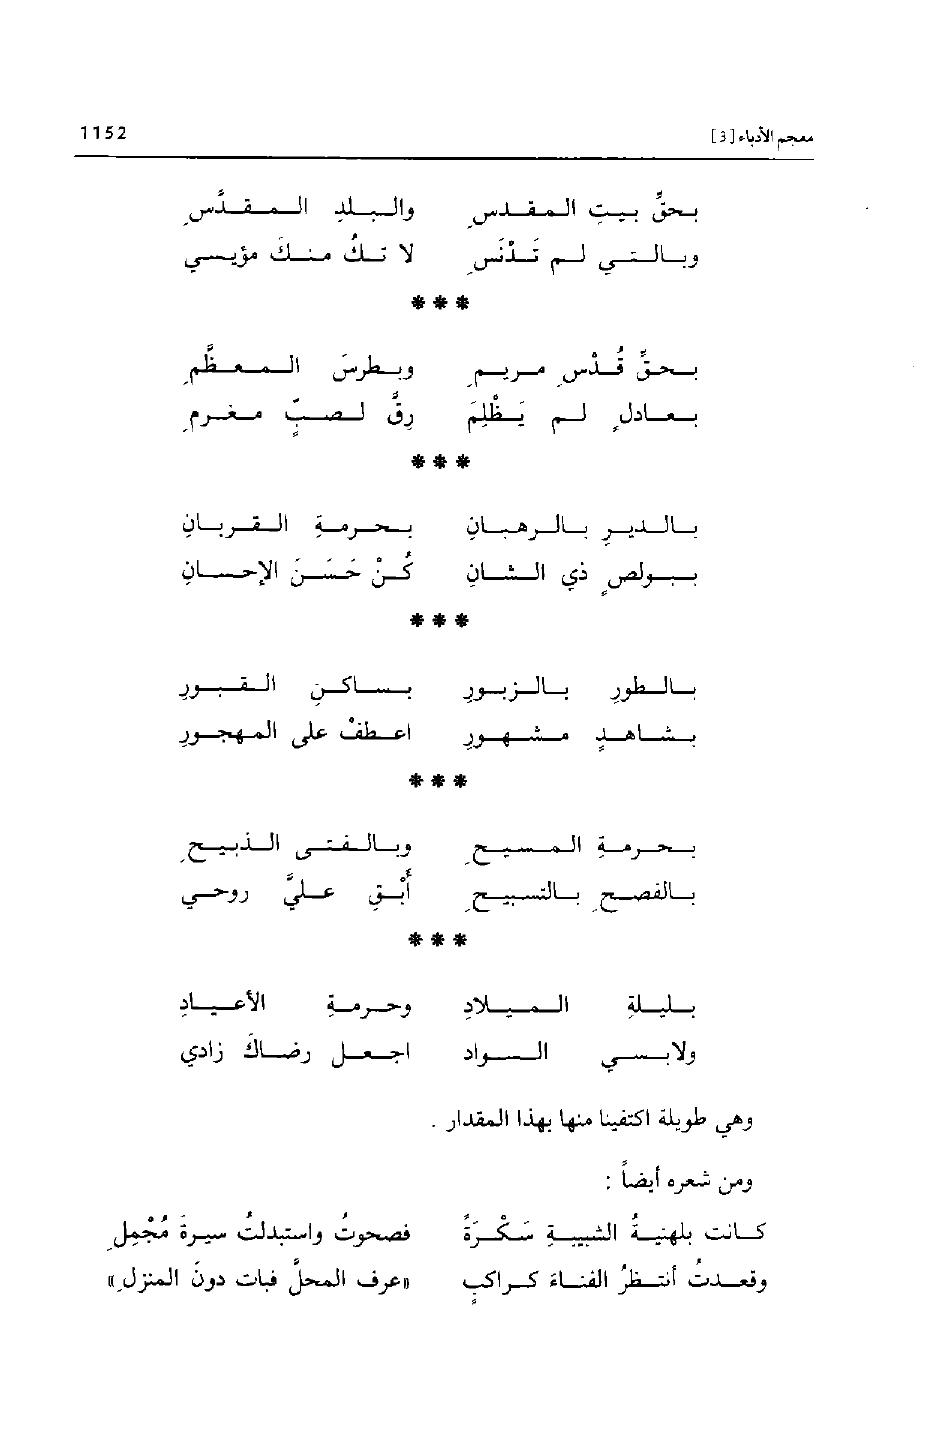 معجم الأدباء [3] 1152
بحقِّ بيتِ المقدسِ والبلدِ المقدَّسِ
وبالتي لم تَدْنَسِ لا تكُ منكَ مؤيسي
***
بحقِّ قُدْسِ مريمِ وبطرسَ المعظَّمِ
بعادلٍ لم يَظْلِمَ رقَّ لصبٍّ مغرمِ
***
بالديرِ بالرهبانِ بحرمةِ القربانِ
ببولصٍ ذي الشانِ كُنْ حَسَنَ الإحسانِ
***
بالطورِ بالزبورِ بساكنِ القبورِ
بشاهدٍ مشهورِ اعطفْ على المهجورِ
***
بحرمةِ المسيحِ وبالفتى الذبيحِ
بالفصحِ بالتسبيحِ أُبْقِ عليَّ روحي
***
بليلةِ الميلادِ وحرمةِ الأعيادِ
ولابسي السواد اجعل رضاكَ زادي
وهي طويلة اكتفينا منها بهذا المقدار .
ومن شعره أيضاً :
كانت بلهنيةُ الشبيبةِ سَكْرَةً فصحوتُ واستبدلتُ سيرةَ مُجْمِلِ
وقعدتُ أنتظرُ الفناءَ كراكبٍ «عرف المحلَّ فبات دونَ المنزلِ»